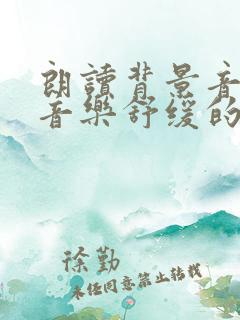 朗讀背景音
音樂舒缓的
徐勤
未经同意禁止转载